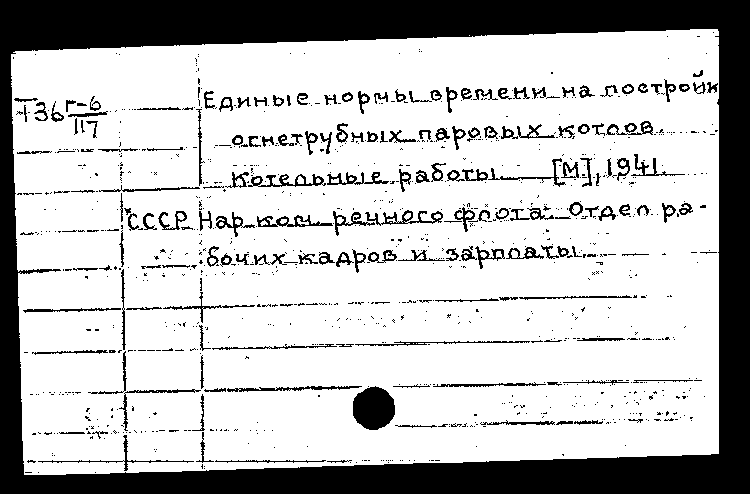 Т36 г-6/117
Единые нормы времени на постройк
огнетрубных паровых котлов.
Котельные работы. [М], 1941.
СССР Нар. ком. речного флота. Отдел ра-
бочих кадров и зарплаты.